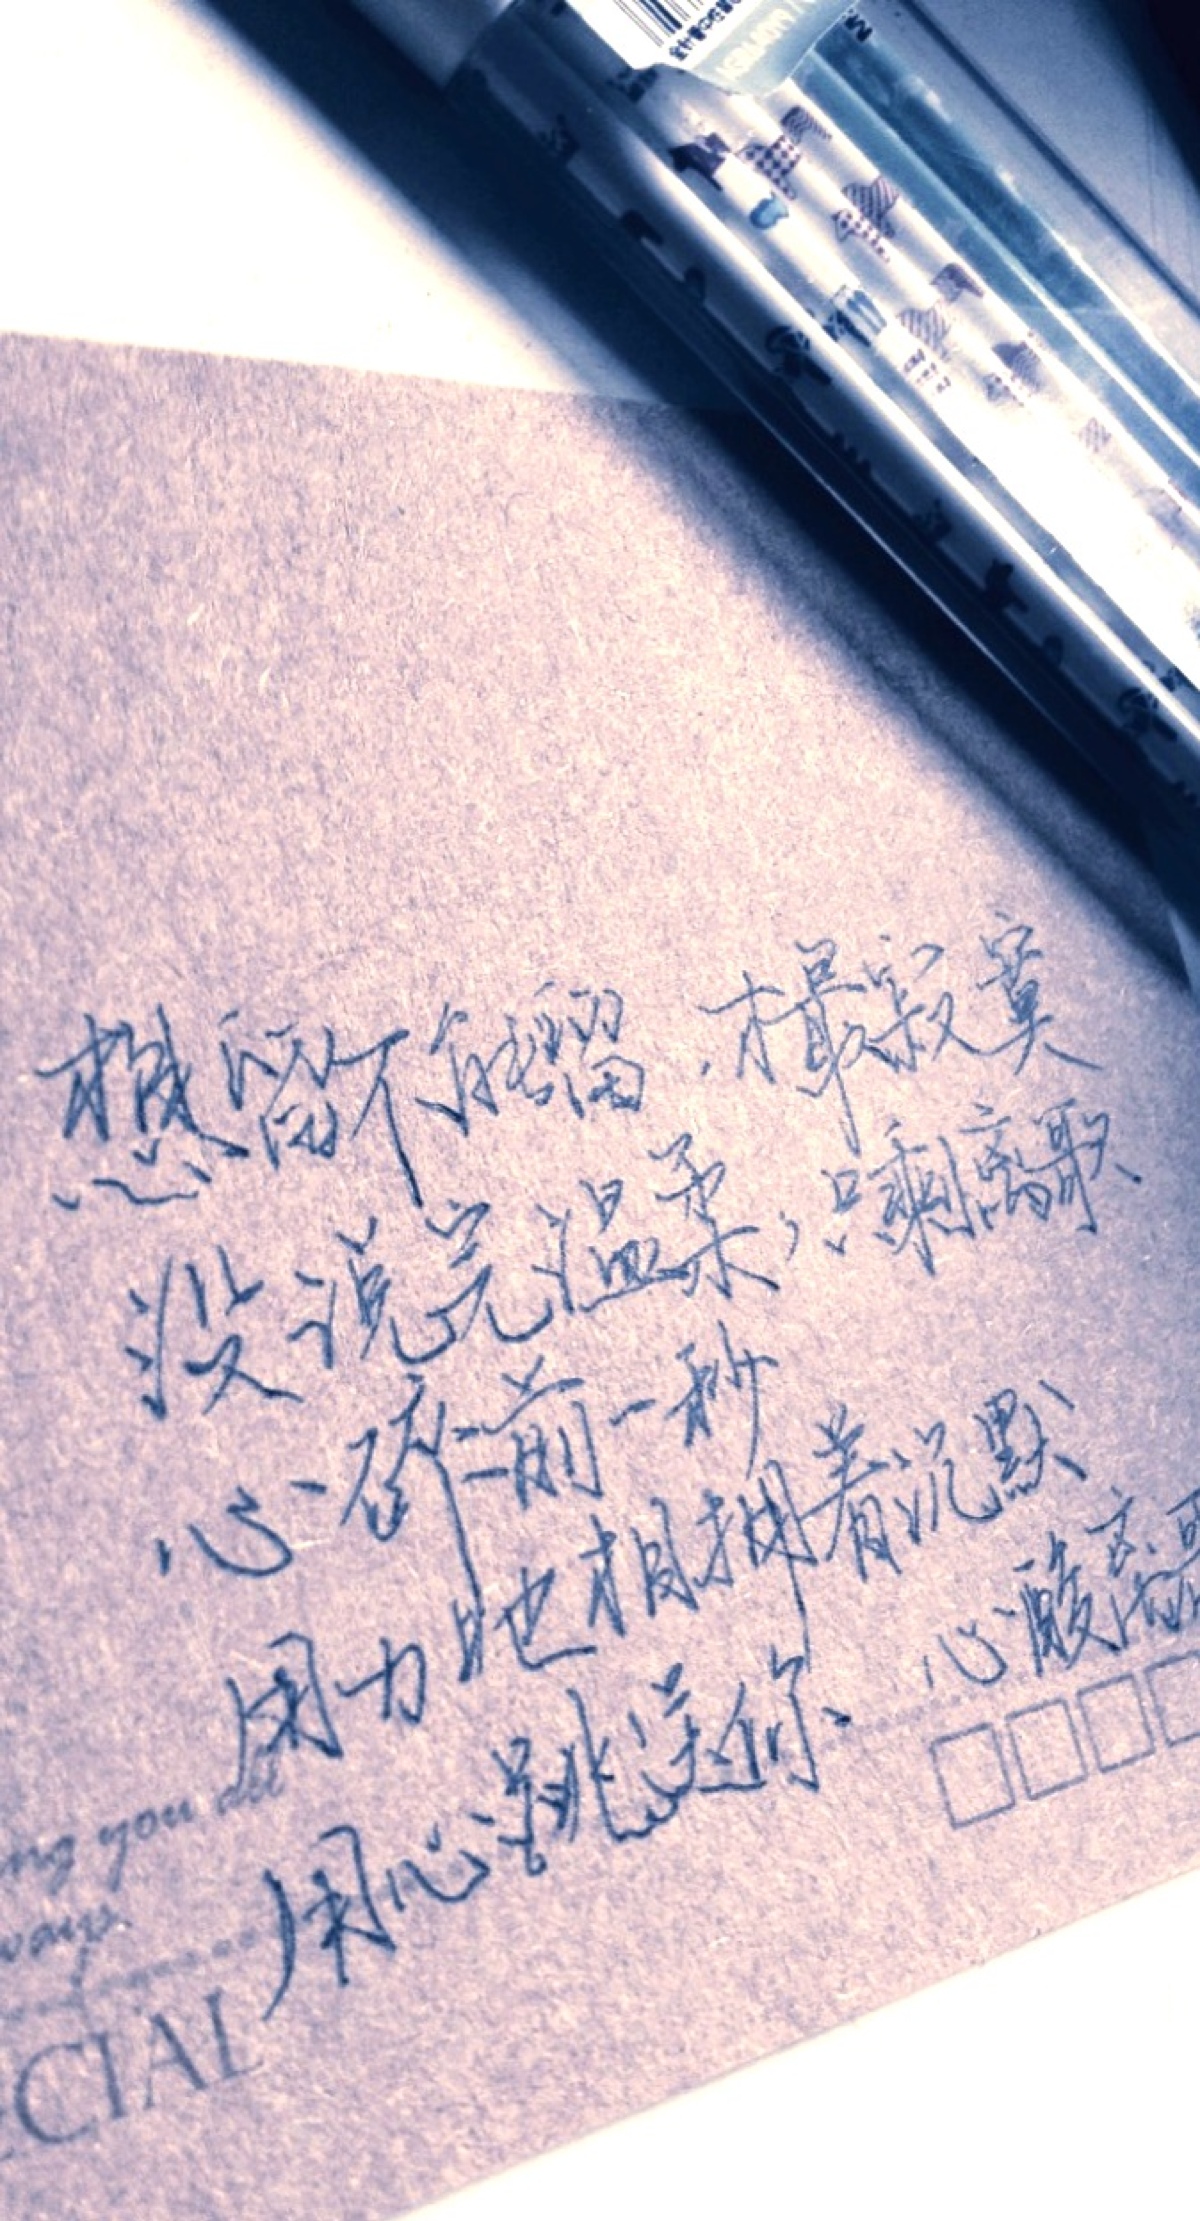 想留不能留.才最寂寞
没说完温柔,只剩离歌
心碎前一秒
用力地相拥着沉默
用心跳送你、心酸离歌
ng you all
ways.
CIAL